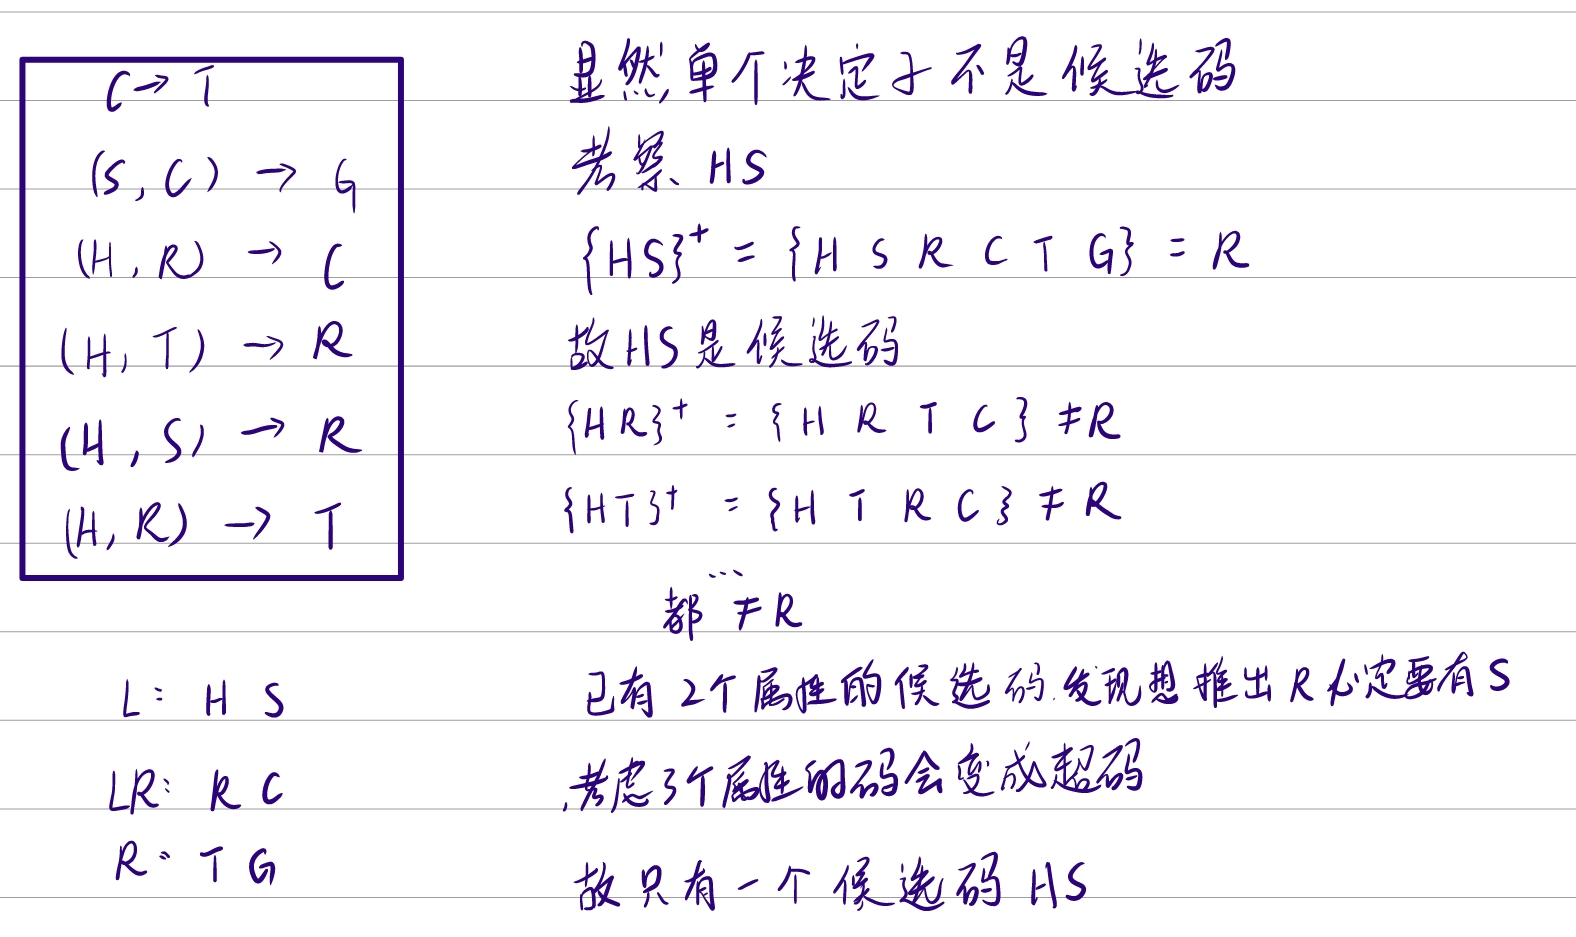 C → T
(S, C) → G
(H, R) → C
(H, T) → R
(H, S) → R
(H, R) → T
L: H S
LR: R C
R: T G
显然,单个决定子不是候选码
考察 HS
{HS}⁺ = {H S R C T G} = R
故HS是候选码
{HR}⁺ = {H R T C} ≠R
{HT}⁺ = {H T R C} ≠ R
...
都 ≠ R
已有 2个属性的候选码.发现想推出 R 必定要有 S
,考虑3个属性的码会变成超码
故只有一个候选码 HS